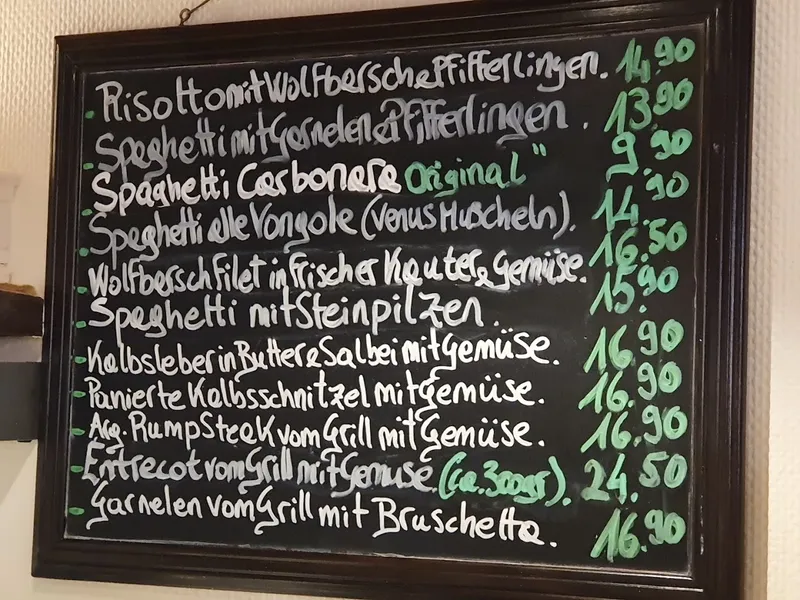 Risotto mit Wolfbersch & Pfifferlingen. 14.90
Spaghetti mit Garnelen & Pfifferlingen. 13.90
Spaghetti Carbonara Original" 9.90
Spaghetti alle Vongole (Venus Muscheln). 14.90
Wolfbersch Filet in Frischer Kauter & Gemüse. 16.50
Spaghetti mit Steinpilzen. 15.90
Kalbsleber in Butter & Salbei mit Gemüse. 16.90
Panierte Kalbsschnitzel mit Gemüse. 16.90
Arg. Rump Steak vom Grill mit Gemüse. 16.90
Entrecot vom Grill mit Gemuse (ca. 300gr). 24.50
Garnelen vom Grill mit Bruschetta. 16.90